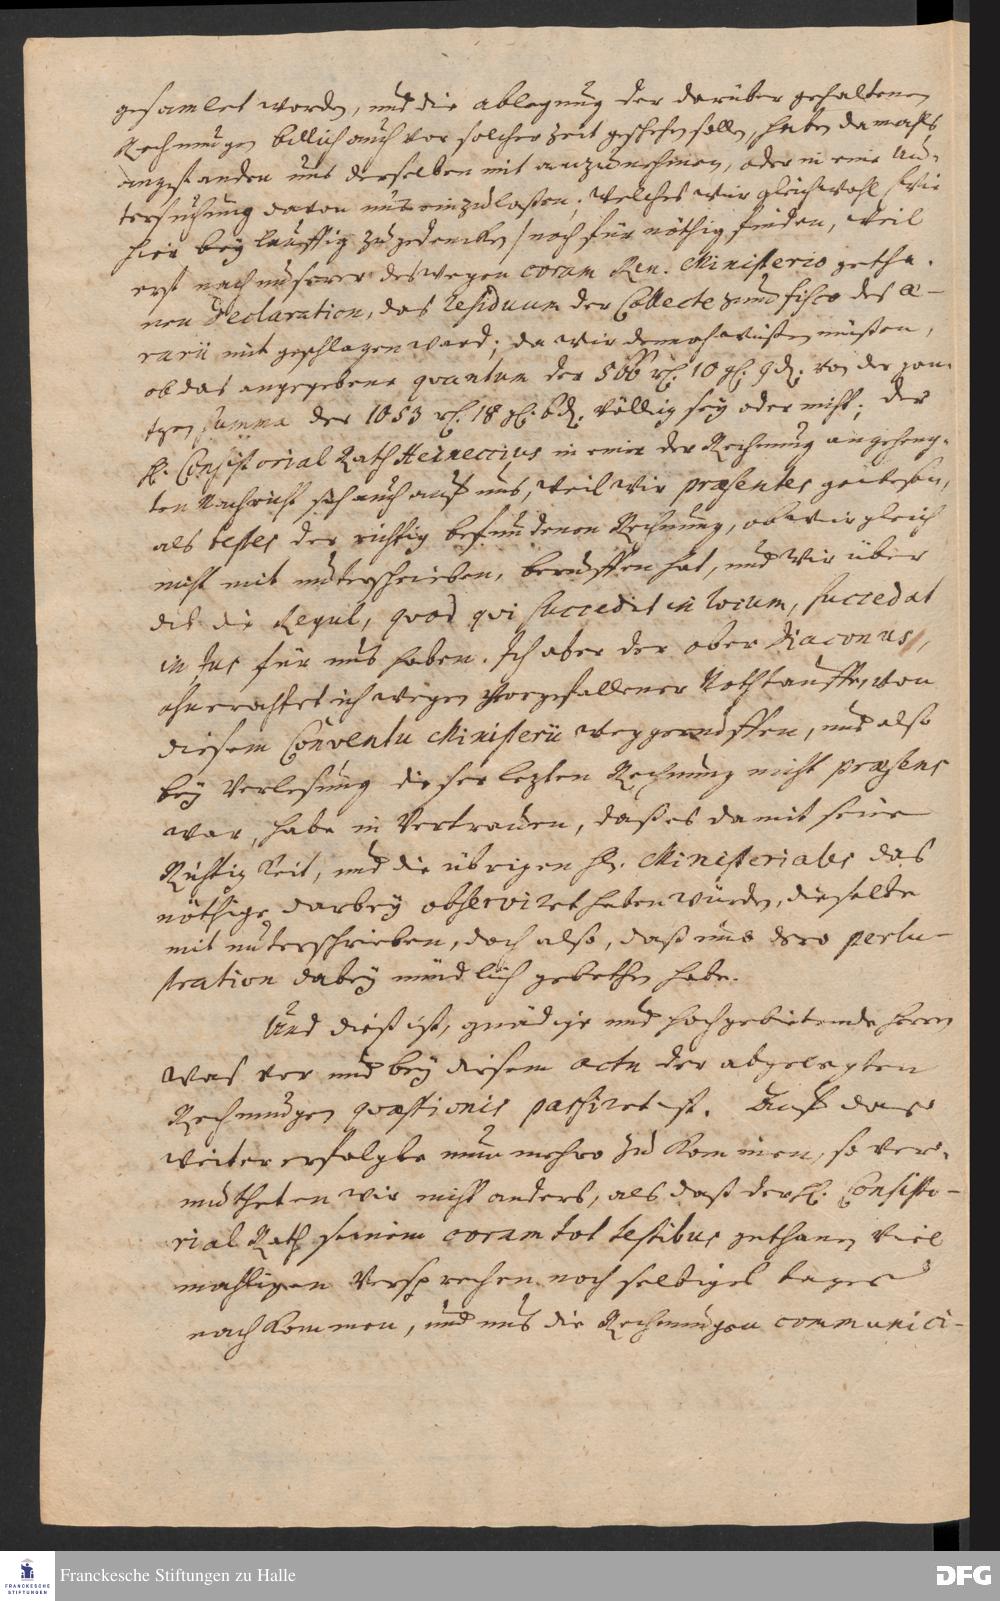 gesamlet worden, und die ablegung der darüber gehaltenen
Rechnungen billich auch vor solcher Zeit geschehen sollen, haben damahls
angestanden uns derselben mit anzunehmen, oder in eine Un-
tersuchung davon mit einzulaßen; welches wir gleichwohl /: wie
hier beyläuffig zu gedencken / noch für nöthig finden, weil
erst nach unserer deswegen coram Ren. Ministerio getha-
nen Declaration, das Residuum der Collecte zum fisco des æ-
rarii mit geschlagen ward; da wir dennoch wißen müßen,
ob das angegebene quantum der 566 rl. 10 gl. 9 d. von der gan-
tzen summa der 1053 rl. 18 gl. 6 d. völlig sey oder nicht; der
H. Consistorial Rath Heineccius in einer der Rechnung angeheng-
ten Nachricht sich auch auf uns, weil wir præsentes gewesen,
als testes der richtig befundenen Rechnung, ob wir gleich
nicht mit unterschrieben, beruffen hat, und wir über
dis die Regul, quod qui succedit in locum, succedat
in jus für uns haben. Ich aber der ober Diaconus,
ohnerachtet ich wegen vorgefallener Nothtauffe, von
diesem Conventu Ministerii weggeruffen, und also
bey Verlesung dieser lezten Rechnung nicht præsens
war, habe in Vertrauen, daß es damit seine
Richtigkeit, und die übrigen H. Ministeriales das
nöthige darbey observiret haben würden, dieselbe
mit unterschrieben, doch also, daß um dero perlu-
stration dabey mündlich gebethen habe.
Und dieß ist, gnädige und hochgebietende Herren
was vor und bey diesem actu der abgelegten
Rechnungen quæstionis passiret ist. Auf das
weiter erfolgte nun mehro zu kommen, so ver-
mutheten wir nicht anders, als daß der H. Consisto-
rial Rath seinem coram tot testibus gethanen viel
mahligen Versprechen noch selbiges tages
nachkommen, und uns die Rechnungen communici-
Franckesche Stiftungen zu Halle
FRANCKESCHE
STIFTUNGEN
DFG